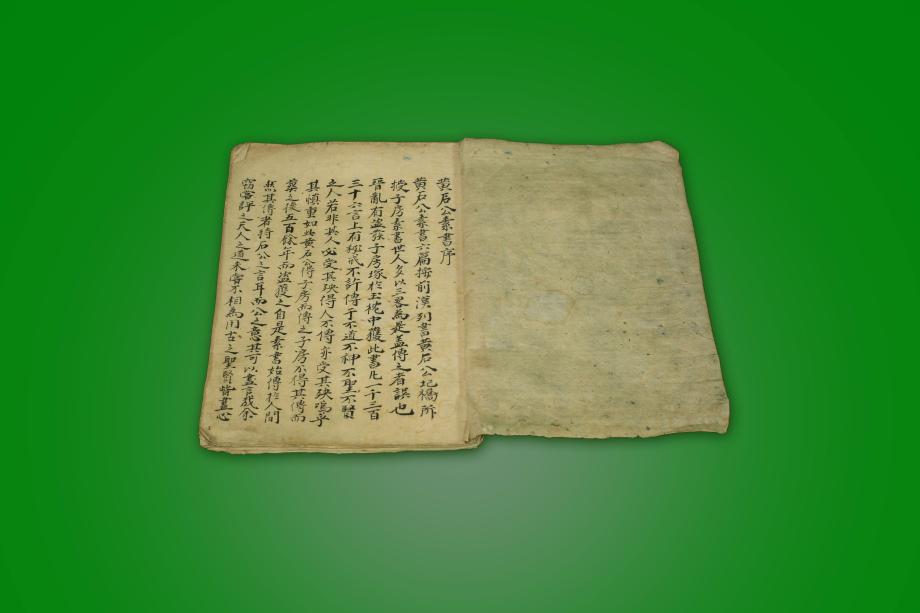 黄石公素書序
黄石公素書六篇按前漢列書黄石公圯橋所
授子房素書世人多以三畧為是盖傳之者誤也
晉亂有盗發子房塚於玉枕中獲此書凡一千三百
三十六言上有秘戒不許傳于不道不神不聖不賢
之人若非其人必受其殃得人不傳亦受其殃嗚乎
其慎重如此黄石公得子房而傳之子房不得其傳而
葬之後五百餘年而盗獲之自是素書始傳於人間
然其傳者特石公之言耳而公之意其可以盡言哉余
窃嘗評之天人之道未嘗不相為用古之聖賢皆盡心